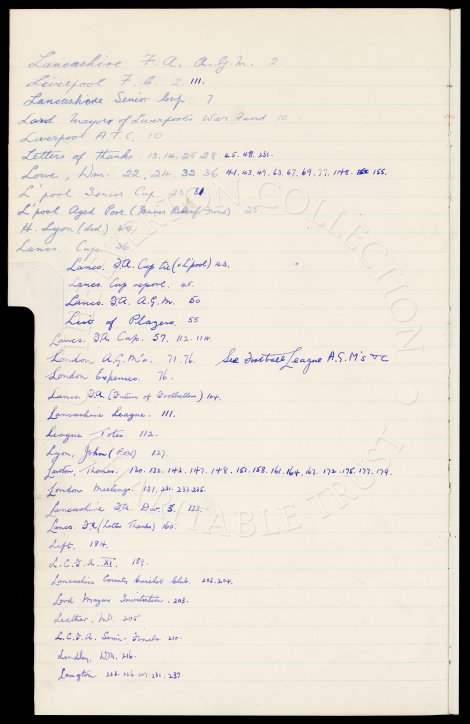 Lancashire F.A. A.G.M. 2.
Liverpool F.C. 2 111.
Lancashire Senior Cup. 7
Lord Mayors of Liverpool's War Fund 10
Liverpool A.T.C. 10
Letters of thanks 13. 14. 25. 28. 45. 48. 231.
Lowe, Wm. 22, 24. 32. 36 41. 43. 47. 63. 67. 69. 77. 148. 155.
L'pool Senior Cup. 23
L'pool Aged Poor. ( Relief Fund) 25
H. Lyon (dcd.)
Lancs. Cup. 36
Lancs. F.A. Cup tie (v L'pool) 43.
Lancs. Cup report. 45.
Lancs. F.A. A.G.M. 50
List of Players. 55
Lancs. F.A. Cup. 57. 112. 114.
London A.G.M's. 71. 76. See Football League A.G.M's &c
London Expenses. 76.
Lancs. F.A. (Future of Footballers) 104.
Lancashire League. 111.
League Notes. 112.
Lyon, John (Pow) 127.
Lawton, Thomas. 130. 132. 143. 147. 148. 151. 158. 161. 164. 167. 172. 175. 177. 179.
London Meetings. 131. 231. 233. 235.
Lancashire F.A. Div. S. 133.
Lancs. F.A. (Letter Thanks) 160.
Lift. 184.
L.C.F.A. XI. 189.
Lancashire County Cricket Club. 203. 204.
Lord Mayors Invitation. 203.
Leather. 205
L.C.F.A. Semi-Finals 210.
Lindley, 216.
Langton.
THE EVERTON COLLECTION
CHARITABLE TRUST